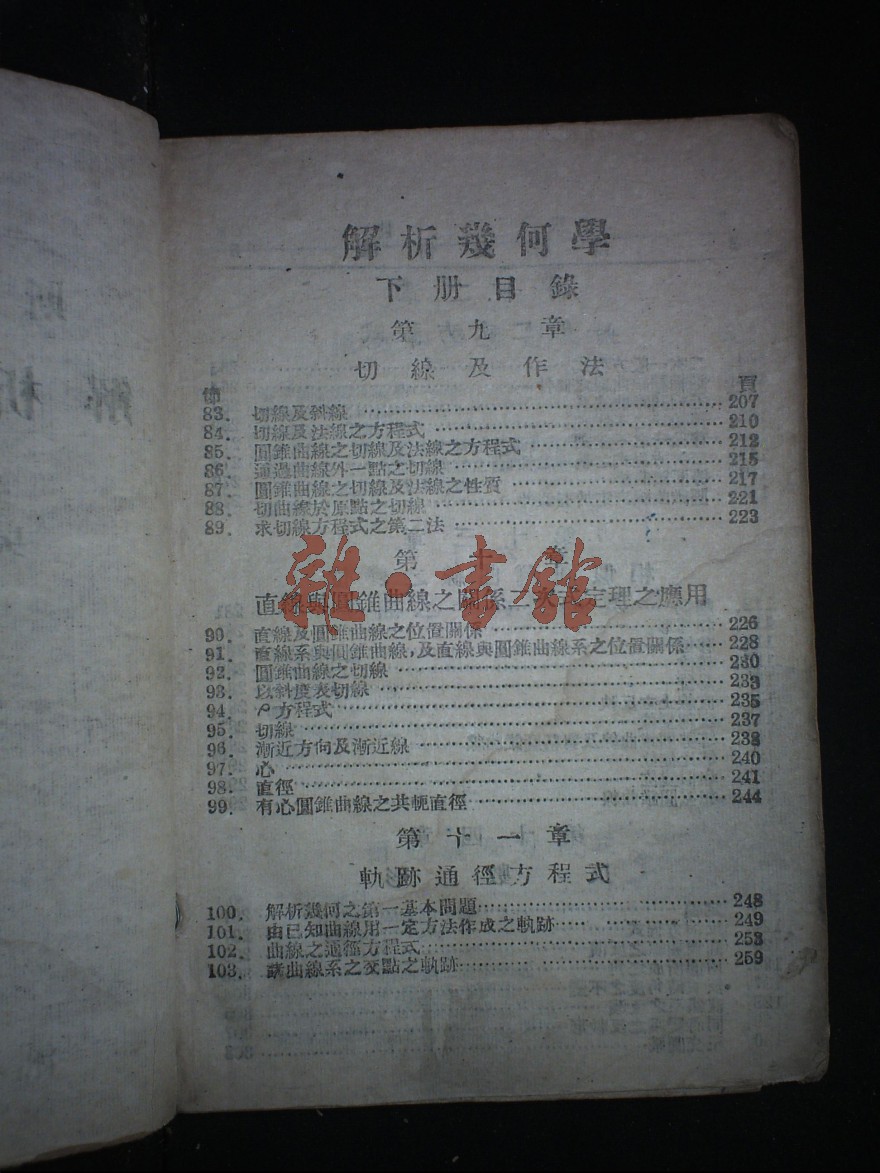 解析幾何學
下册目錄
第九章
切線及作法
節 頁
83. 切線及斜線 207
84. 切線及法線之方程式 210
85. 圓錐曲線之切線及法線之方程式 212
86. 通過曲線外一點之切線 215
87. 圓錐曲線之切線及法線之性質 217
88. 切曲線於原點之切線 221
89. 求切線方程式之第二法 223
雜·書館
第十章
直線與圓錐曲線之關係二次式定理之應用
90. 直線及圓錐曲線之位置關係 226
91. 直線系與圓錐曲線,及直線與圓錐曲線系之位置關係 228
92. 圓錐曲線之切線 230
93. 以斜度表切線 233
94. ρ方程式 235
95. 切線 237
96. 漸近方向及漸近線 238
97. 心 240
98. 直徑 241
99. 有心圓錐曲線之共軛直徑 244
第十一章
軌跡通徑方程式
100. 解析幾何之第一基本問題 248
101. 由已知曲線用一定方法作成之軌跡 249
102. 曲線之通徑方程式 253
103. 諸曲線系之交點之軌跡 259